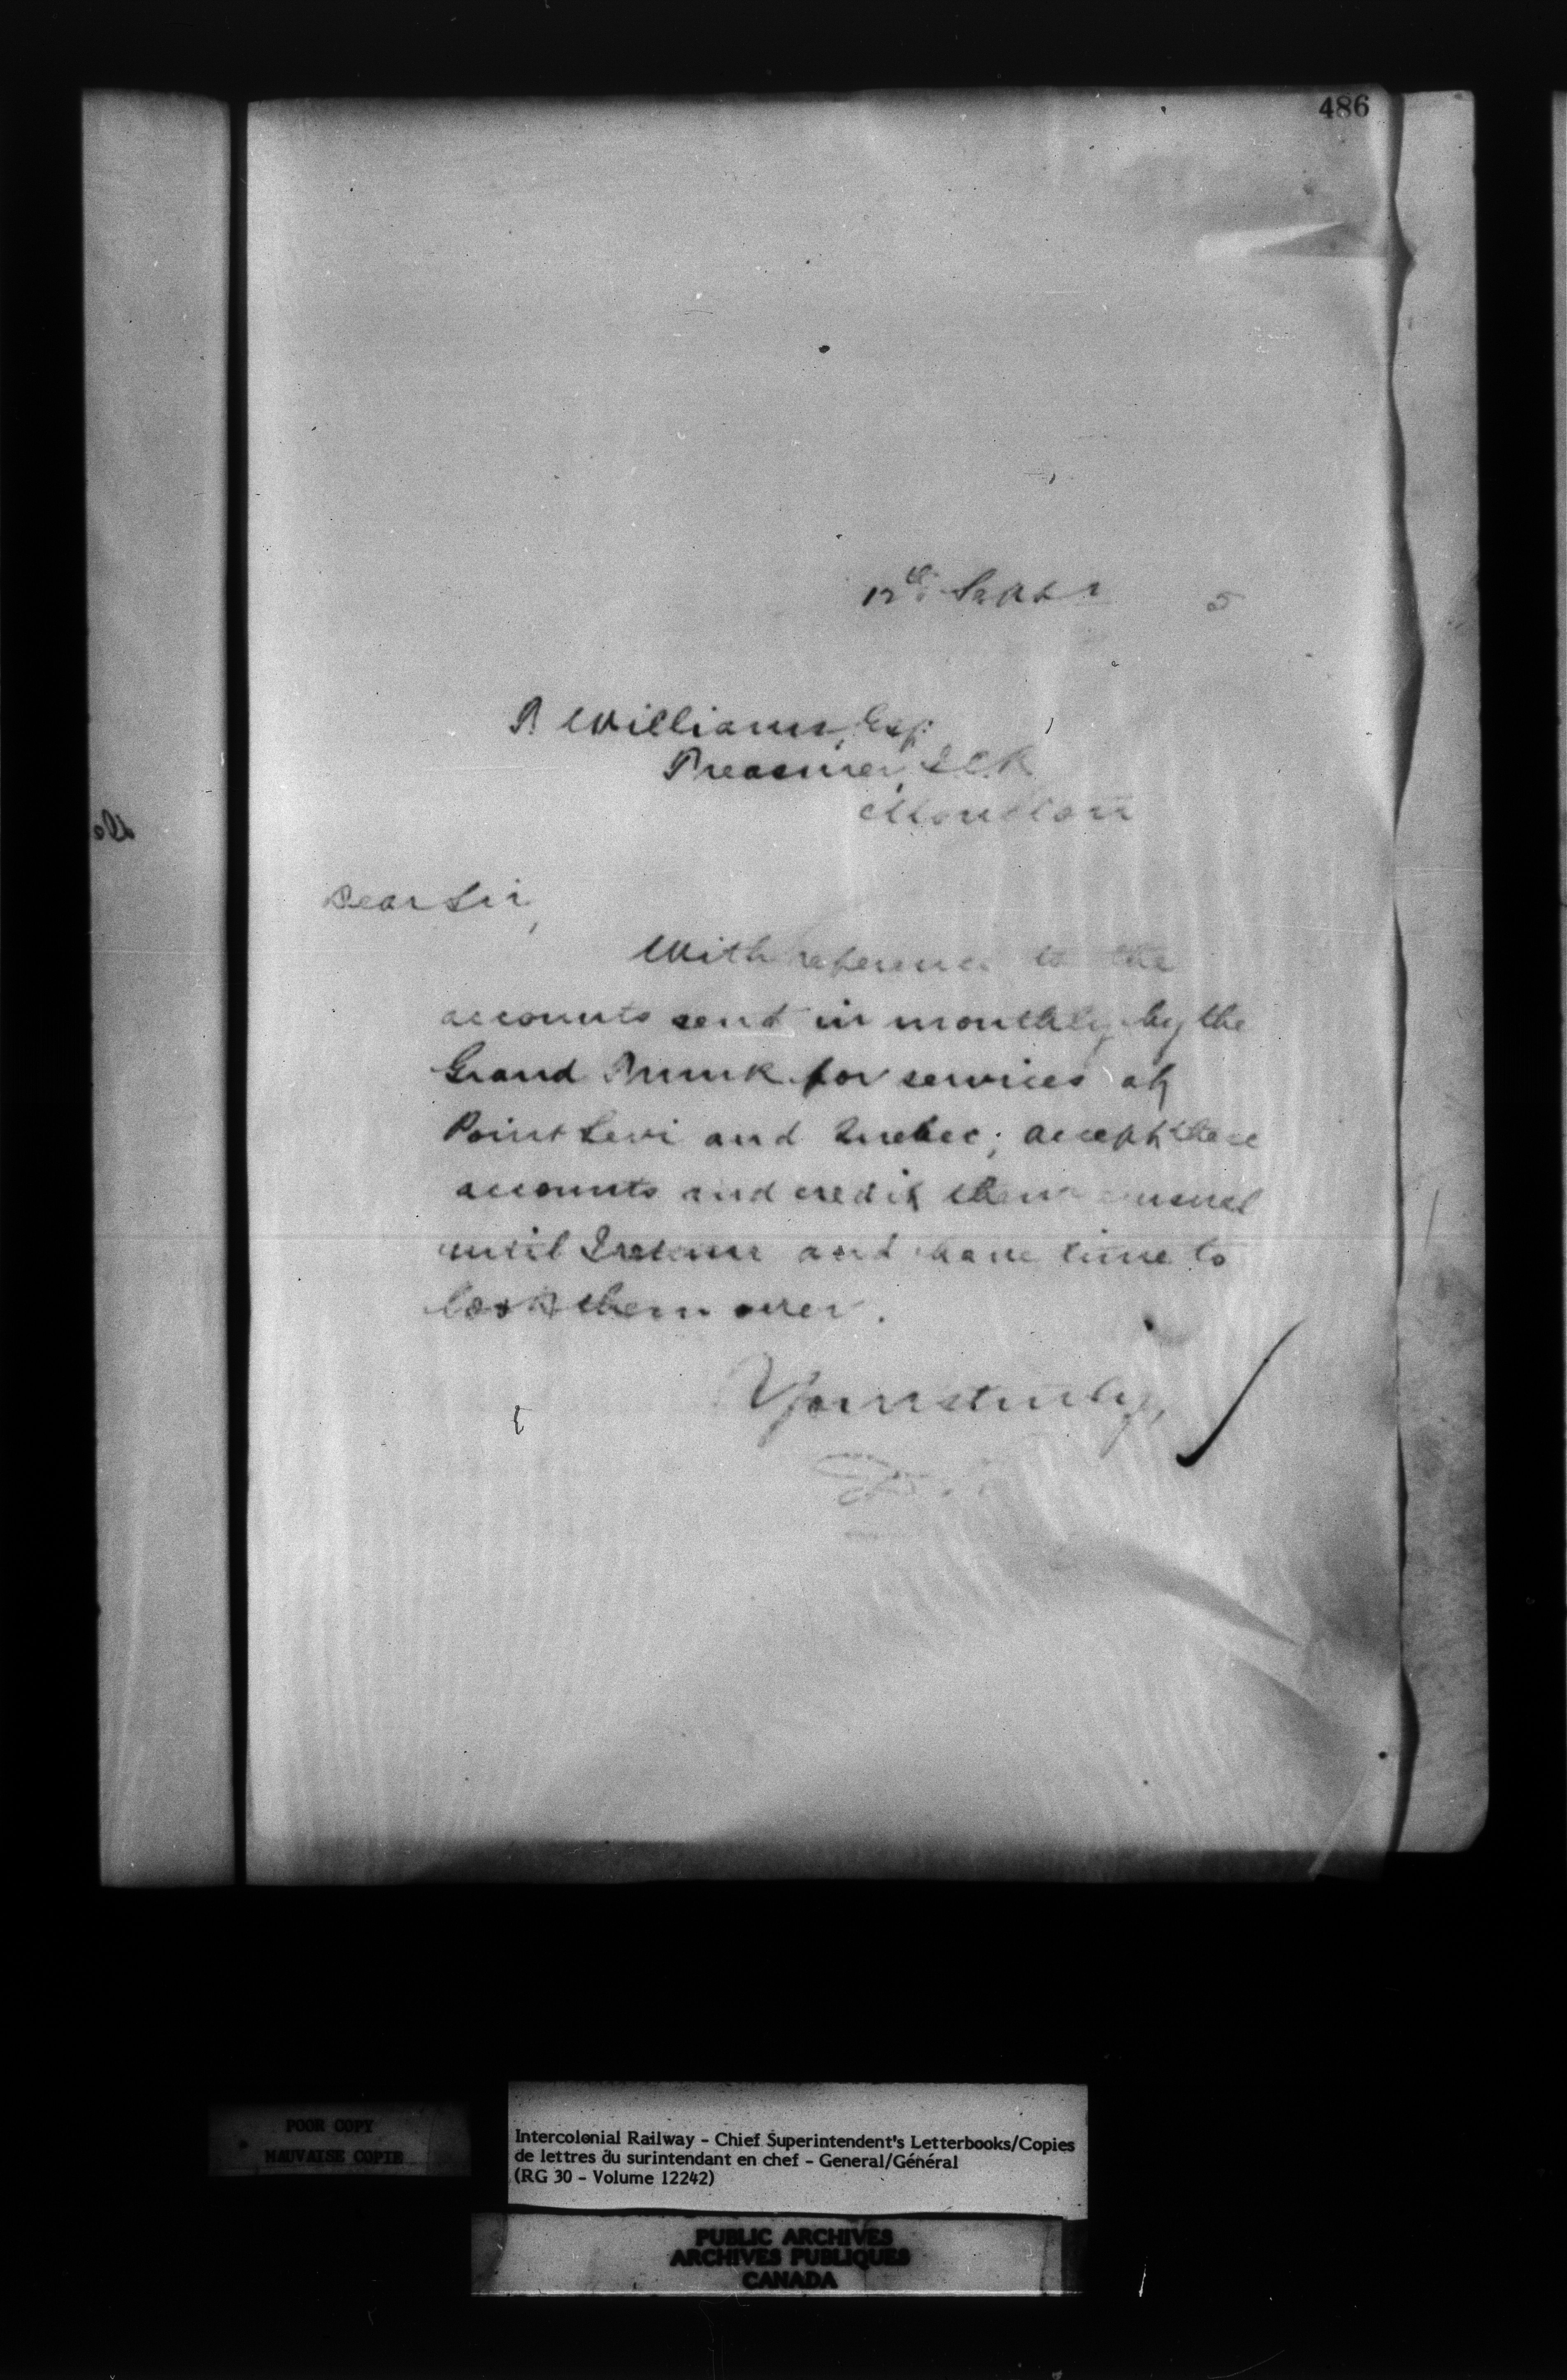 486
12th Septr 5
T Williams, Esq.
Treasurer, I.C.R.
Moncton
Dear Sir,
With reference to the
accounts send in monthly by the
Grand Trunk for services at
Point Levi and Quebec; accept these
accounts and credit them usual
until I return and have time to
look them over.
Yours truly,
POOR COPY
MAUVAISE COPIE
Intercolonial Railway - Chief Superintendent's Letterbooks/Copies
de lettres du surintendant en chef - General/Général
(RG 30 - Volume 12242)
PUBLIC ARCHIVES
ARCHIVES PUBLIQUES
CANADA